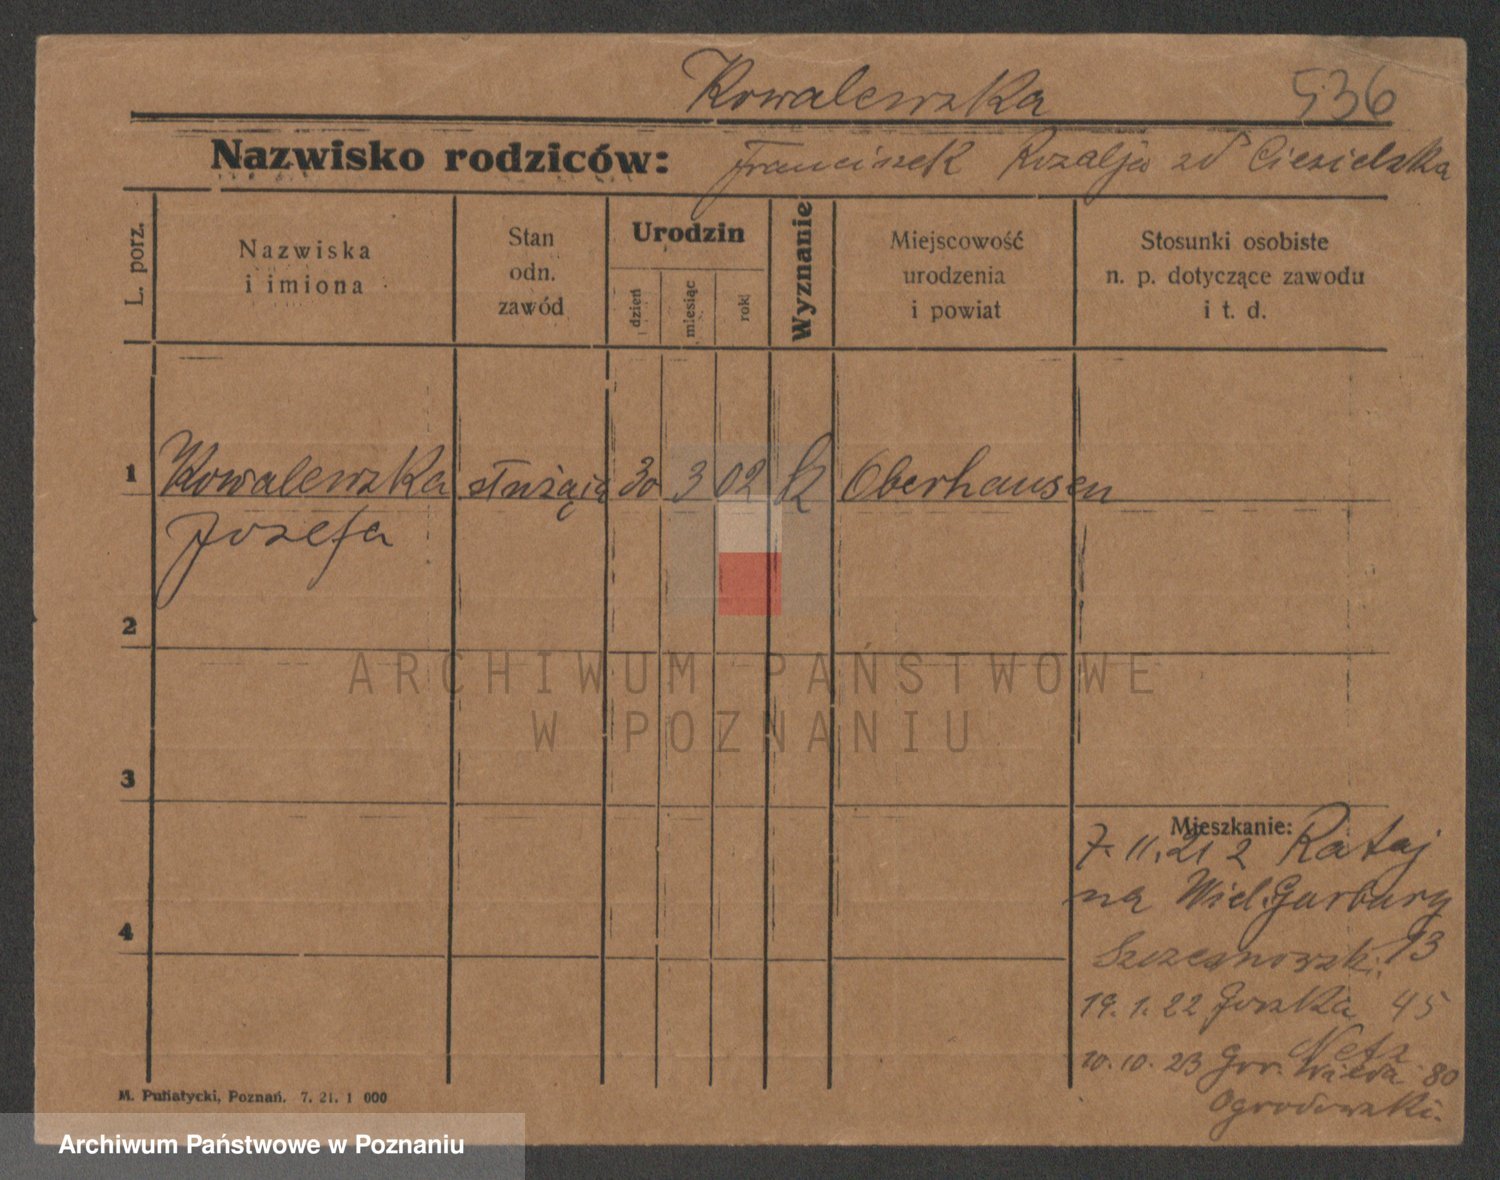 Kowalewska 536
Nazwisko rodziców: Franciszek Rozalja zd Ciesielska
L. porz.
Nazwiska
i imiona
Stan
odn.
zawód
Urodzin
dzień
miesiąc
rok
Wyznanie
Miejscowość
urodzenia
i powiat
Stosunki osobiste
n. p. dotyczące zawodu
i t. d.
1 Kowalewska służąca 30 3 02 k Oberhausen
Józefa
2
3
Mieszkanie:
7.11.21 z Rataj
na Wiel. Garbary
4
Szczesnowski 13
19.1.22 45
10.10.23 Gór. Wilda 80
Ogrodowski.
M. Putiatycki, Poznań. 7. 21. 1 000
ARCHIWUM PAŃSTWOWE
W POZNANIU
Archiwum Państwowe w Poznaniu